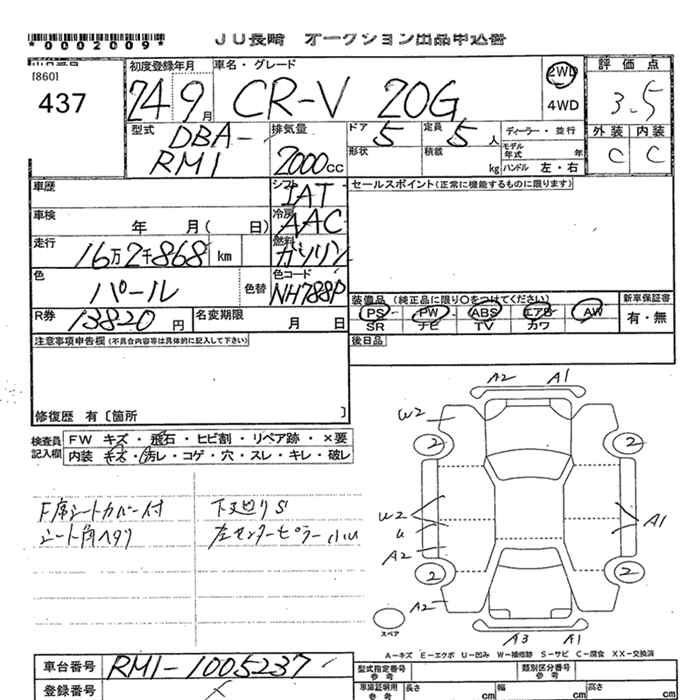 *0002009*
JU長崎 オークション出品申込書
[860]
437
初度登録年月
24 9月
車名・グレード
CR-V 20G
2WD
4WD
評価点
3.5
外装 内装
C C
型式
DBA-
RM1
排気量
2000cc
ドア 5
定員 5人
形状
積載 kg
ディーラー・並行
モデル年式 年
ハンドル 左・右
車歴
シフト
IAT
セールスポイント(正常に機能するものに限ります)
車検 年 月( 日)
冷房
AAC
走行 16万2千868 km
燃料
ガソリン
色 パール
色替
色コード
NH788P
R券 13820円
名変期限 月 日
装備品(純正品に限り○をつけてください)
PS PW ABS エアB AW
SR ナビ TV カワ
新車保証書
有・無
後日品
注意事項申告欄(不具合内容等は具体的に記入して下さい)
修復歴 有〔箇所 〕
検査員記入欄
FW キズ・飛石・ヒビ割・リペア跡・×要
内装 キズ・汚レ・コゲ・穴・スレ・キレ・破レ
F席シートカバー付
シート角ヘタリ
下廻りS
左センターピラー小U
A2 A1
W2
2 2
W2
U
A2
A1
2 2
A2
スペア
A3 A1
A-キズ E-エクボ U-凹み W-補修跡 S-サビ C-腐食 XX-交換済
車台番号 RM1-1005237
登録番号
型式指定番号 参考
類別区分番号 参考
車庫証明用 参考
長さ cm
幅 cm
高さ cm